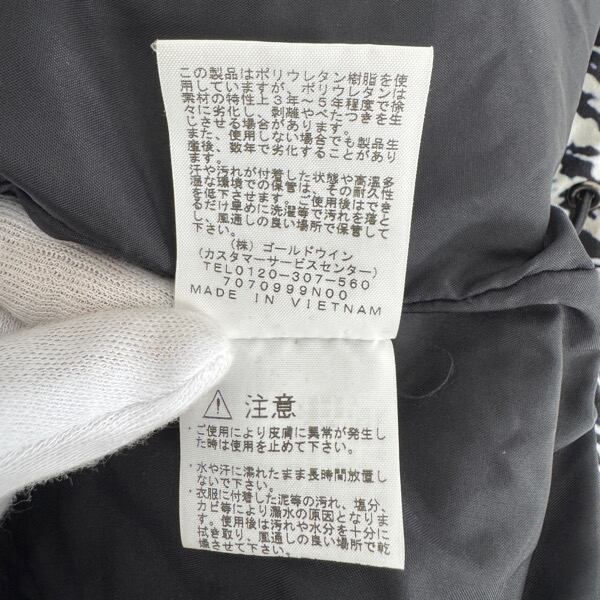 この製品はポリウレタン樹脂を使
用していますが、ポリウレタンは
素材の特性上3年〜5年程度で徐
々に劣化し、剥離やべたつきを生
じさせる場合があります。
また、使用しない場合でも製品生
産後、数年で劣化することがあり
ます。
汗や汚れが付着した状態や高温多
湿な環境での保管は、その耐久性
を低下させます。ご使用後はでき
るだけ早めに洗濯等で汚れを落と
し、風通しの良い場所で保管して
下さい。
(株)ゴールドウイン
(カスタマーサービスセンター)
TEL0120-307-560
7070999N00
MADE IN VIETNAM
注意
・ご使用により皮膚に異常が発生し
た時は使用を止めて下さい。
・水や汗に濡れたまま長時間放置し
ないで下さい。
・衣服に付着した泥等の汚れ、塩分、
カビ等により漏水の原因となりま
す。使用後は汚れや水分を十分に
拭き取り、風通しの良い場所で乾
燥させて下さい。